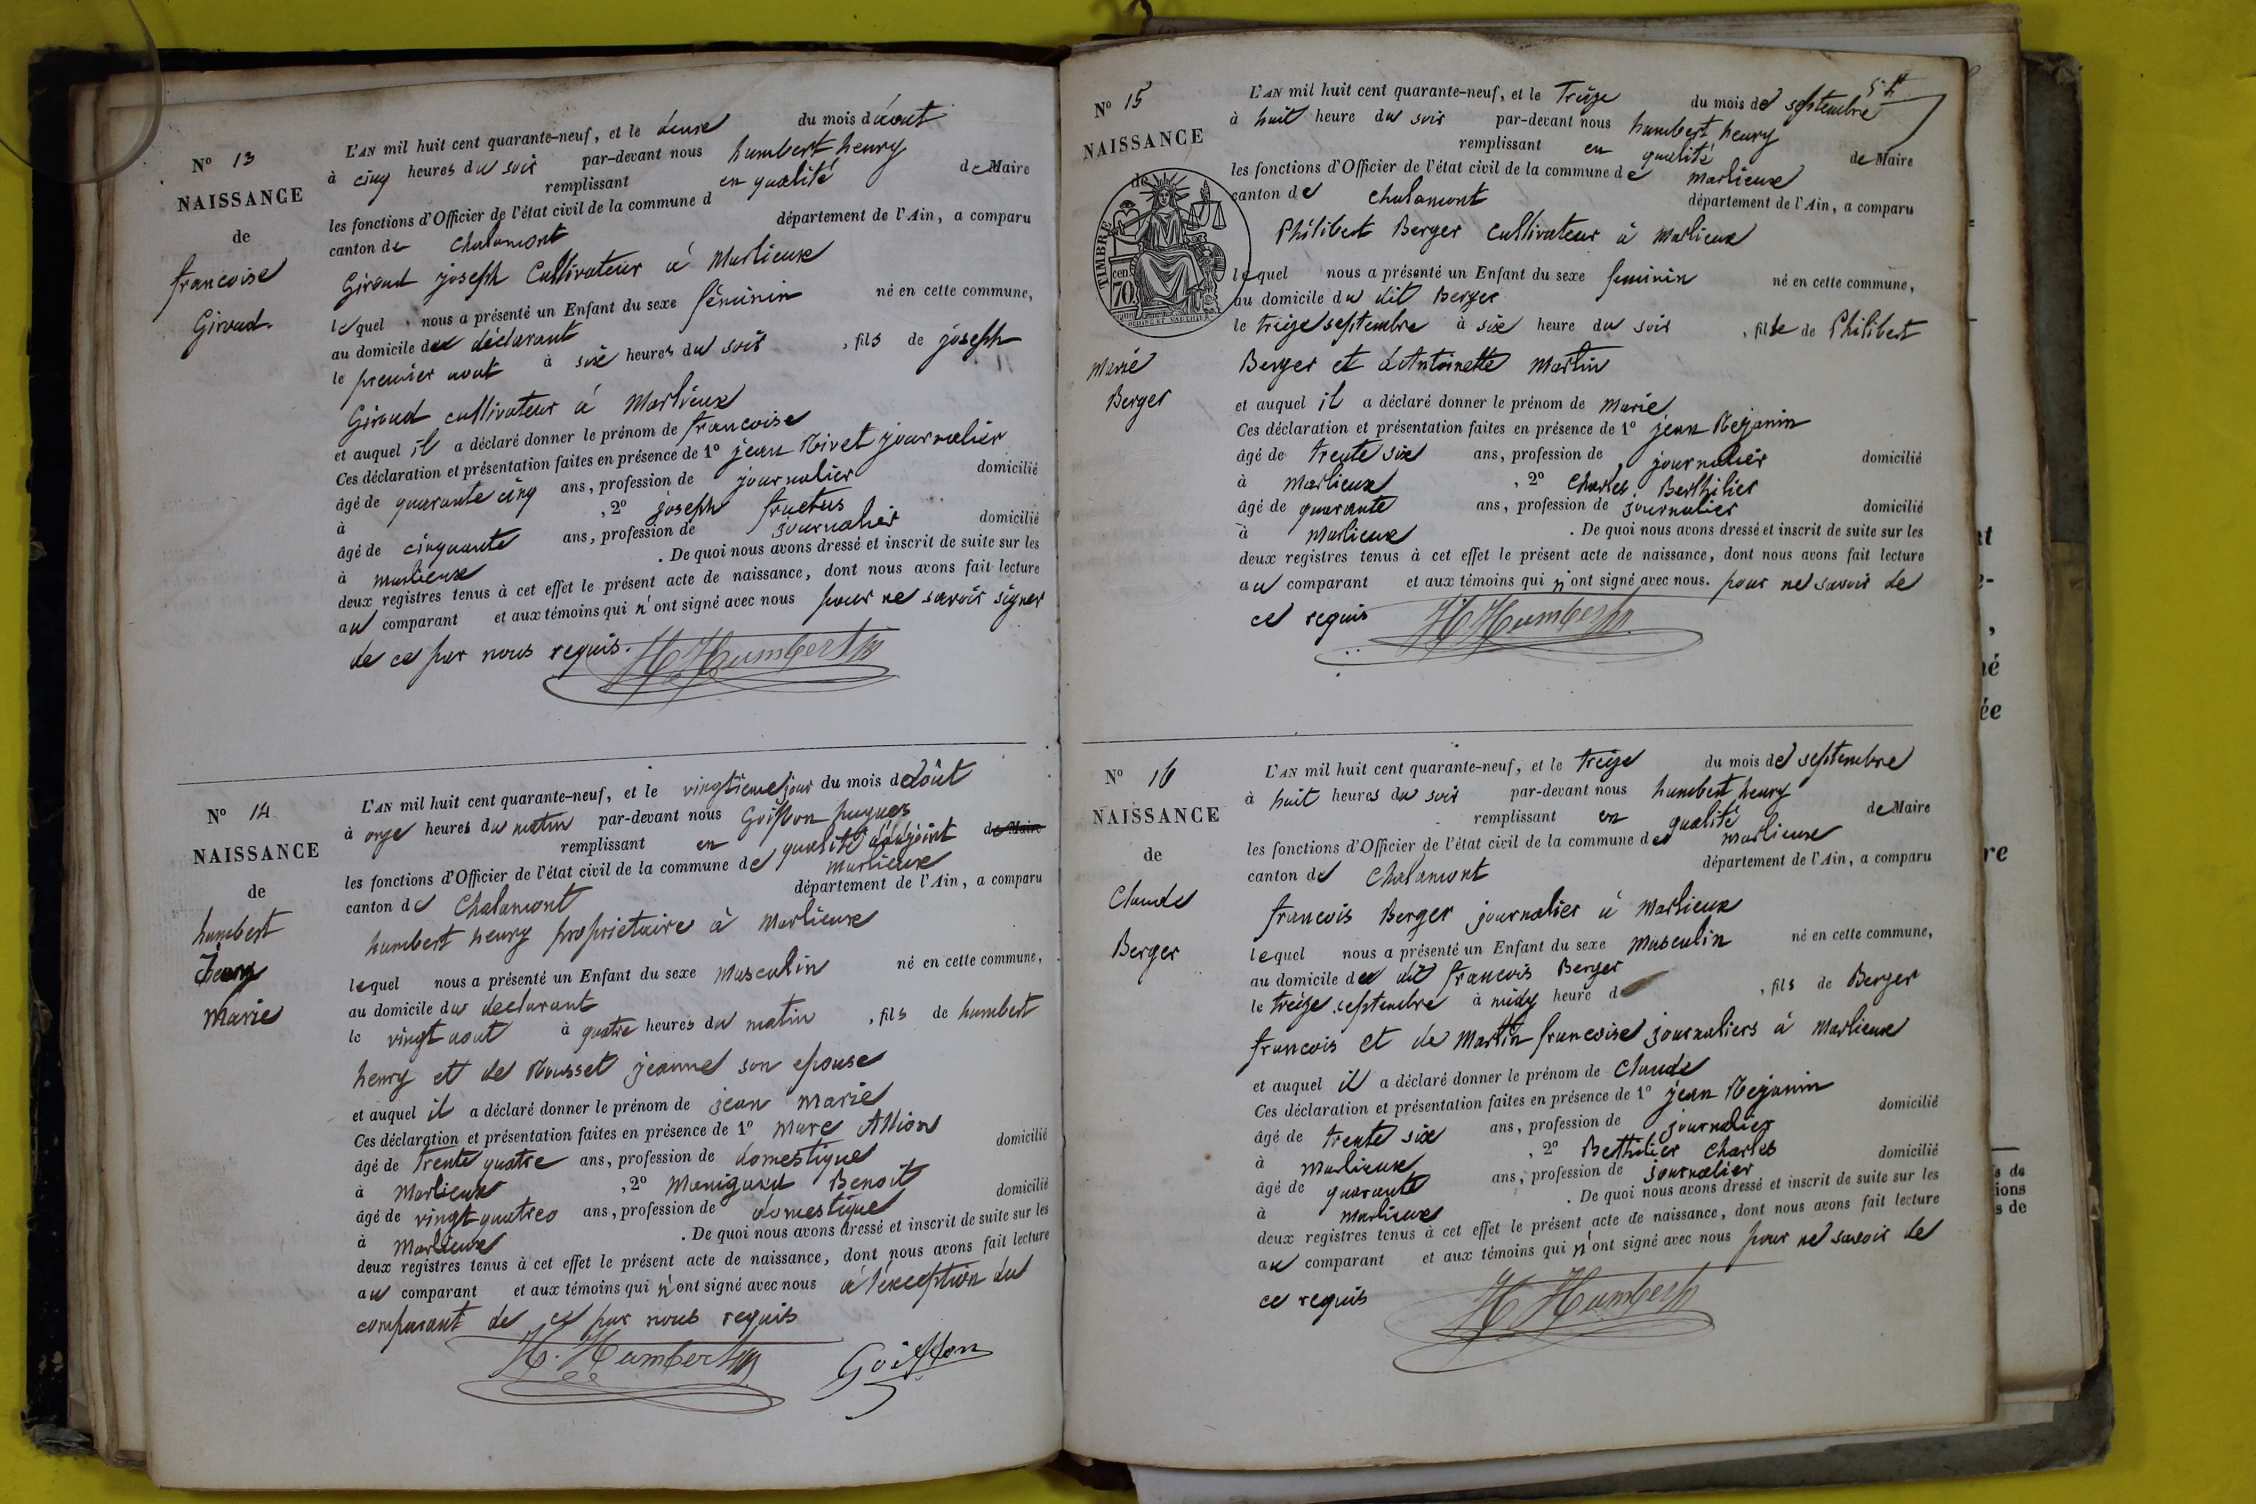 N° 13
NAISSANCE
de
francoise
Giroud.
L'AN mil huit cent quarante-neuf, et le deux du mois d'aout
à cinq heures du soir par-devant nous humbert henry
remplissant en qualité de Maire
les fonctions d'Officier de l'état civil de la commune d
canton de Chalamont département de l'Ain, a comparu
Giroud joseph Cultivateur à Marlieux
lequel nous a présenté un Enfant du sexe féminin né en cette commune,
au domicile du déclarant
le premier aout à six heures du soir , fils de joseph
Giroud cultivateur à Marlieux
et auquel il a déclaré donner le prénom de francoise
Ces déclaration et présentation faites en présence de 1° jean Nivet journalier
âgé de quarante cinq ans, profession de journalier domicilié
à , 2° joseph fructus
âgé de cinquante ans, profession de journalier domicilié
à marlieux . De quoi nous avons dressé et inscrit de suite sur les
deux registres tenus à cet effet le présent acte de naissance, dont nous avons fait lecture
au comparant et aux témoins qui n'ont signé avec nous pour ne savoir signer
de ce par nous requis.
H Humbert
N° 14
NAISSANCE
de
humbert
henry
marie
L'AN mil huit cent quarante-neuf, et le vingtieme jour du mois d'août
à onze heures du matin par-devant nous Goiffon hugues
remplissant en qualité d'adjoint de Maire
les fonctions d'Officier de l'état civil de la commune de Marlieux
canton de Chalamont département de l'Ain, a comparu
humbert henry propriétaire à Marlieux
lequel nous a présenté un Enfant du sexe Masculin né en cette commune,
au domicile du declarant
le vingt aout à quatre heures du matin , fils de humbert
henry et de Rousset jeanne son epouse
et auquel il a déclaré donner le prénom de jean marie
Ces déclaration et présentation faites en présence de 1° Marc Allion
âgé de trente quatre ans, profession de domestique domicilié
à Marlieux , 2° Manigand Benoit
âgé de vingt quatre ans, profession de domestique domicilié
à Marlieux . De quoi nous avons dressé et inscrit de suite sur les
deux registres tenus à cet effet le présent acte de naissance, dont nous avons fait lecture
au comparant et aux témoins qui n'ont signé avec nous à l'exception du
comparant de ce par nous requis
H. Humbert Goiffon
N° 15
NAISSANCE
de
TIMBRE
70 cen.
marie
Berger
L'AN mil huit cent quarante-neuf, et le Treize du mois de septembre
à huit heure du soir par-devant nous humbert henry
remplissant en qualité de Maire
les fonctions d'Officier de l'état civil de la commune de Marlieux
canton de Chalamont département de l'Ain, a comparu
Philibert Berger cultivateur à Marlieux
lequel nous a présenté un Enfant du sexe feminin né en cette commune,
au domicile du dit Berger
le treize septembre à six heure du soir , fille de Philibert
Berger et d'Antoinette Martin
et auquel il a déclaré donner le prénom de Marie
Ces déclaration et présentation faites en présence de 1° jean Mejanin
âgé de trente six ans, profession de journalier domicilié
à Marlieux , 2° Charles Berthilier
âgé de quarante ans, profession de journalier domicilié
à Marlieux . De quoi nous avons dressé et inscrit de suite sur les
deux registres tenus à cet effet le présent acte de naissance, dont nous avons fait lecture
au comparant et aux témoins qui n'ont signé avec nous. pour ne savoir de
ce requis H Humbert
N° 16
NAISSANCE
de
Claude
Berger
L'AN mil huit cent quarante-neuf, et le treize du mois de septembre
à huit heures du soir par-devant nous humbert henry
remplissant en qualité de Maire
les fonctions d'Officier de l'état civil de la commune de Marlieux
canton de Chalamont département de l'Ain, a comparu
francois Berger journalier à Marlieux
lequel nous a présenté un Enfant du sexe Masculin né en cette commune,
au domicile du dit francois Berger
le treize septembre à midy heure d , fils de Berger
francois et de Martin francoise journaliers à Marlieux
et auquel il a déclaré donner le prénom de Claude
Ces déclaration et présentation faites en présence de 1° jean Mejanin
âgé de trente six ans, profession de journalier domicilié
à Marlieux , 2° Bethilier Charles
âgé de quarante ans, profession de journalier domicilié
à Marlieux . De quoi nous avons dressé et inscrit de suite sur les
deux registres tenus à cet effet le présent acte de naissance, dont nous avons fait lecture
au comparant et aux témoins qui n'ont signé avec nous pour ne savoir de
ce requis H Humbert